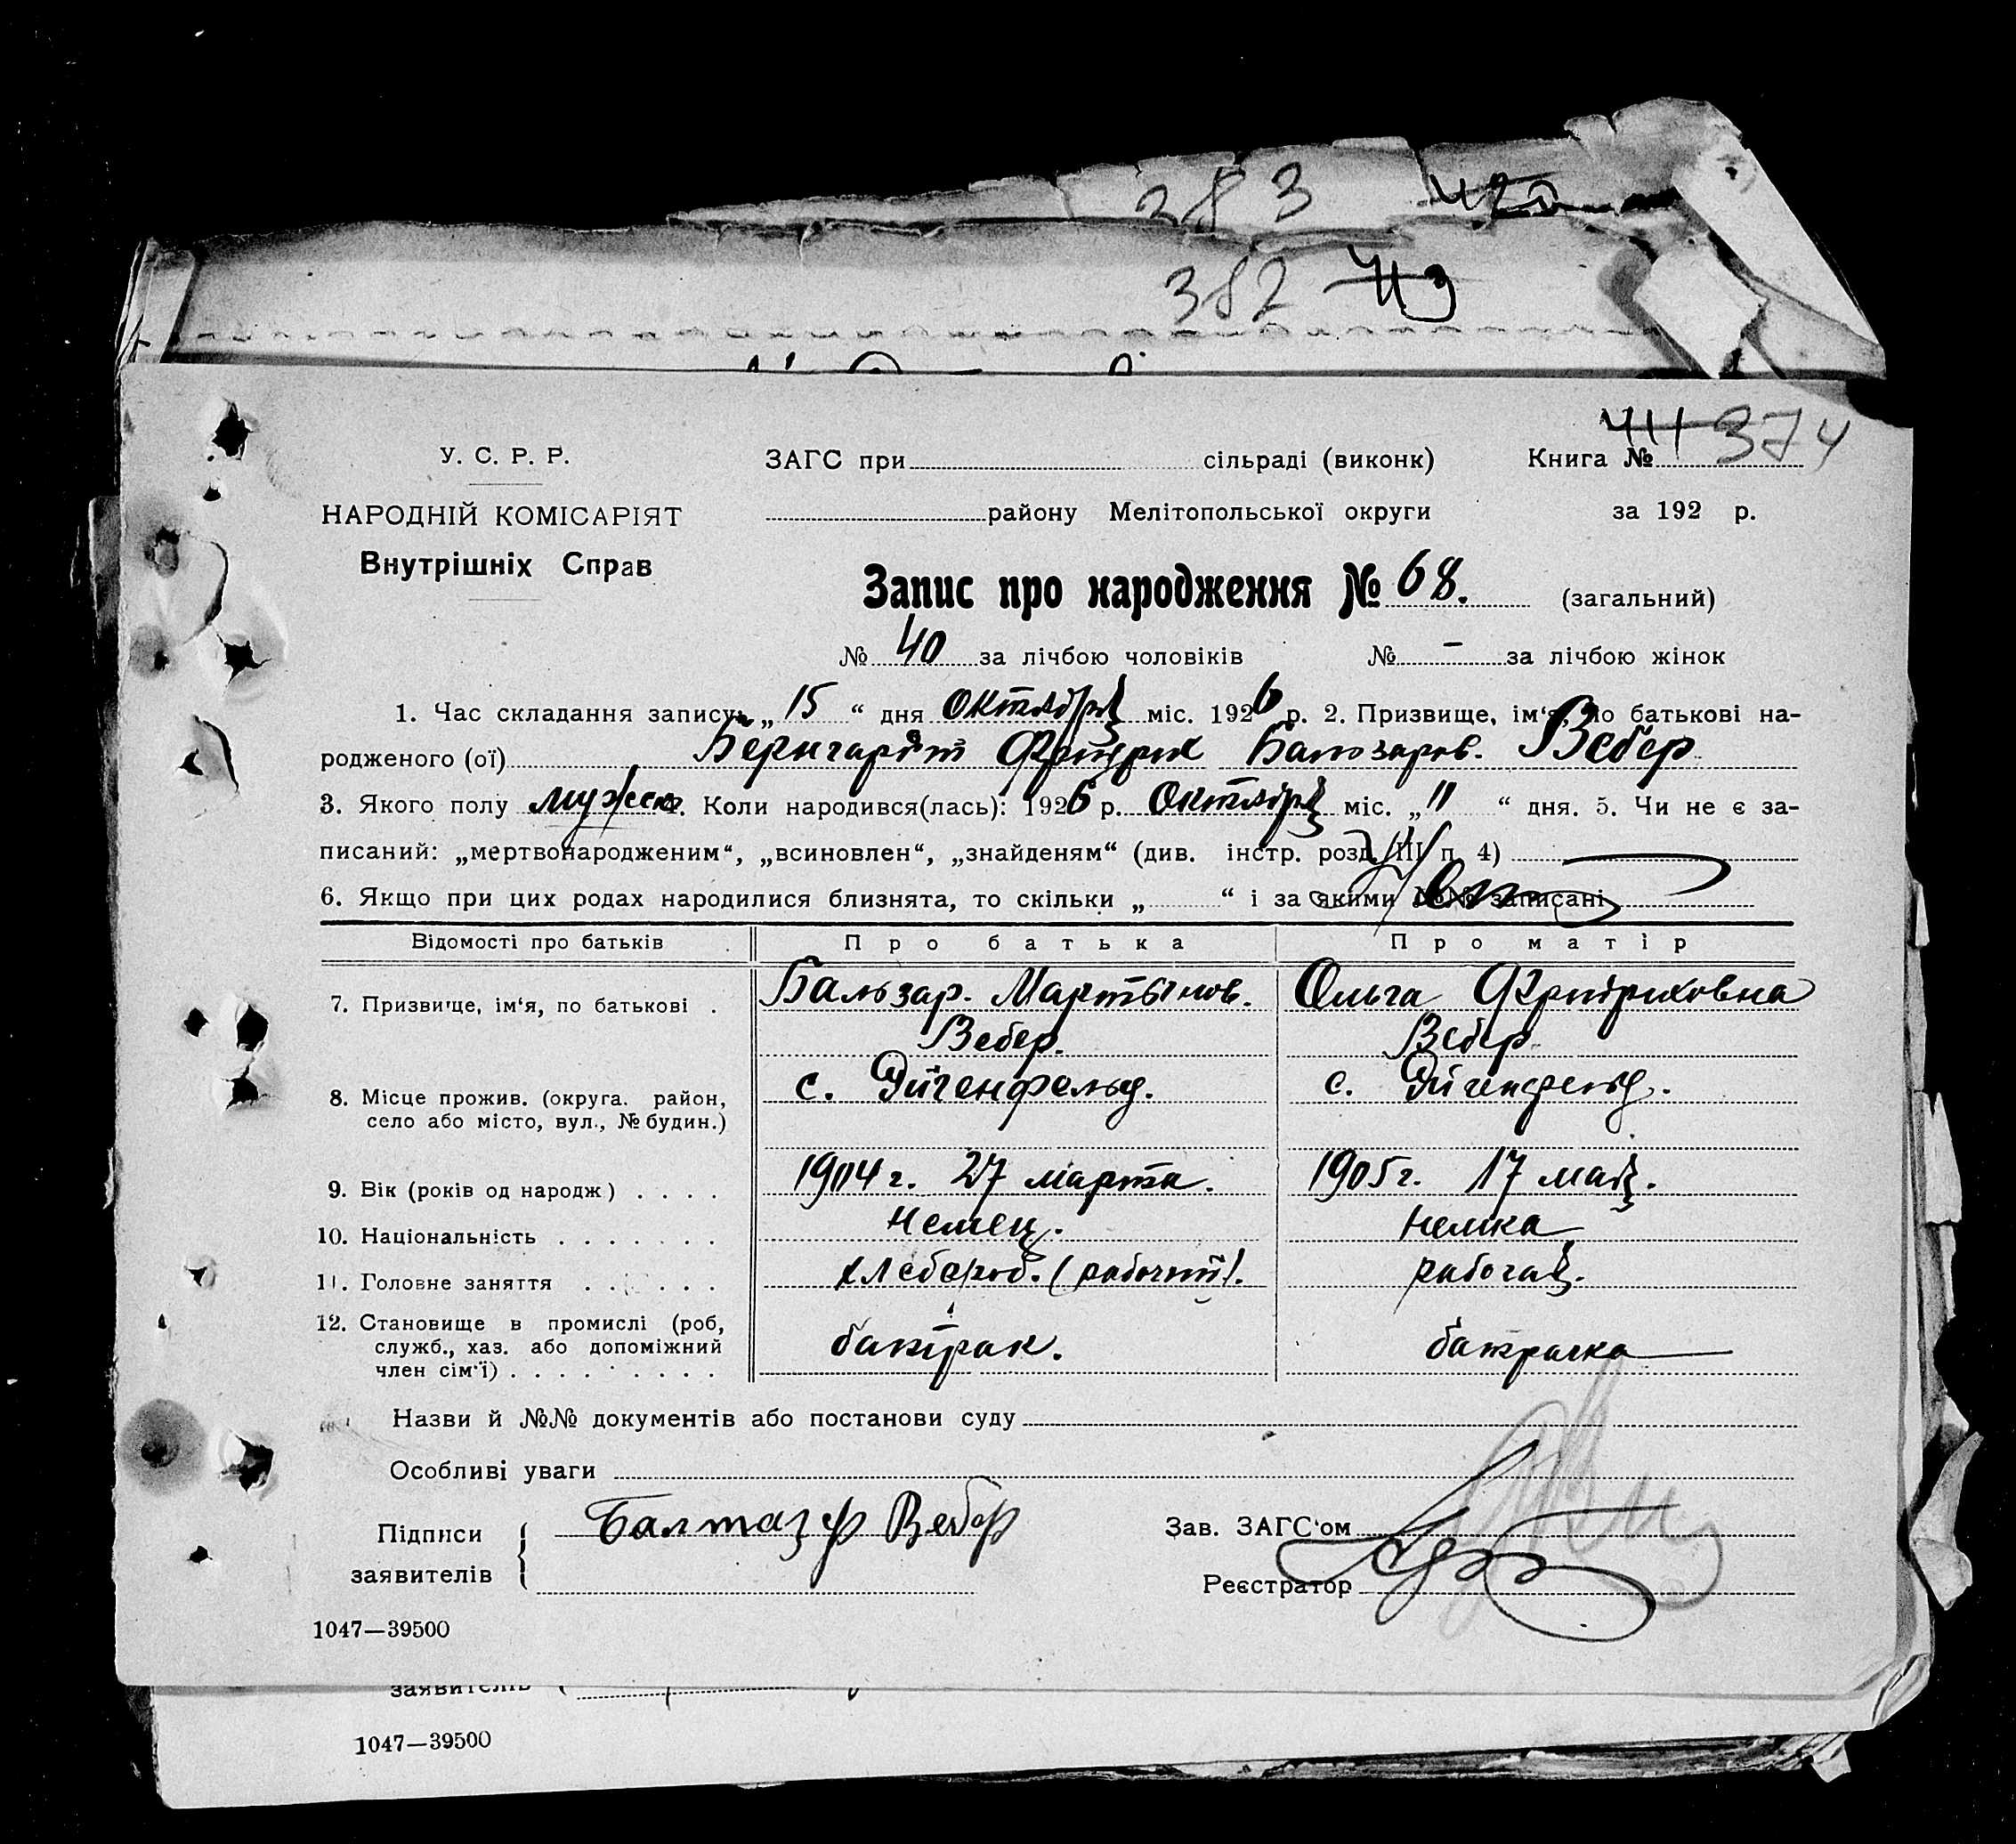 383 420
382 413
411 374
У. С. Р. Р. ЗАГС при сільраді (виконк) Книга №
НАРОДНІЙ КОМІСАРІЯТ району Мелітопольської округи за 192 р.
Внутрішніх Справ
Запис про народження № 68. (загальний)
№ 40 за лічбою чоловіків № - за лічбою жінок
1. Час складання запису: „15“ дня октября міс. 1926 р. 2. Призвище, ім‘я, по батькові на-
родженого (ої) Бернгардт Фридрих Бальзаров. Вебер
3. Якого полу мужск. 4. Коли народився(лась): 1926 р. октября міс. „11“ дня. 5. Чи не є за-
писаний: „мертвонародженим“, „всиновлен“, „знайденям“ (див. інстр. розд. III п. 4)
6. Якщо при цих родах народилися близнята, то скільки „ “ і за якими №№ записані
Відомості про батьків Про батька Про матір
7. Призвище, ім‘я, по батькові . Бальзар. Мартынов. Ольга Фридриховна
Вебер. Вебер
8. Місце прожив. (округа. район, с. Эйгенфельд. с. Эйгенфельд.
село або місто, вул., № будин.)
9. Вік (років од народж) . . . . 1904 г. 27 марта. 1905 г. 17 мая.
10. Національність . . . . . . . Немец. Немка
11. Головне заняття . . . . . . хлебороб. (рабочий). рабочая.
12. Становище в промислі (роб,
служб., хаз. або допоміжний батрак. батрачка
член сім‘ї) . . . . . . . . .
Назви й №№ документів або постанови суду
Особливі уваги
Підписи Балтазар Вебер Зав. ЗАГС‘ом
заявителів Реєстратор
1047—39500
заявителів
1047—39500